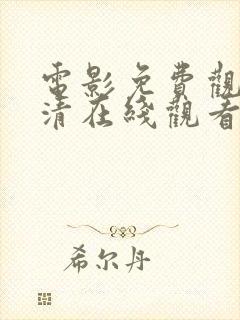 電影免費觀
清在綫觀看
希尔丹